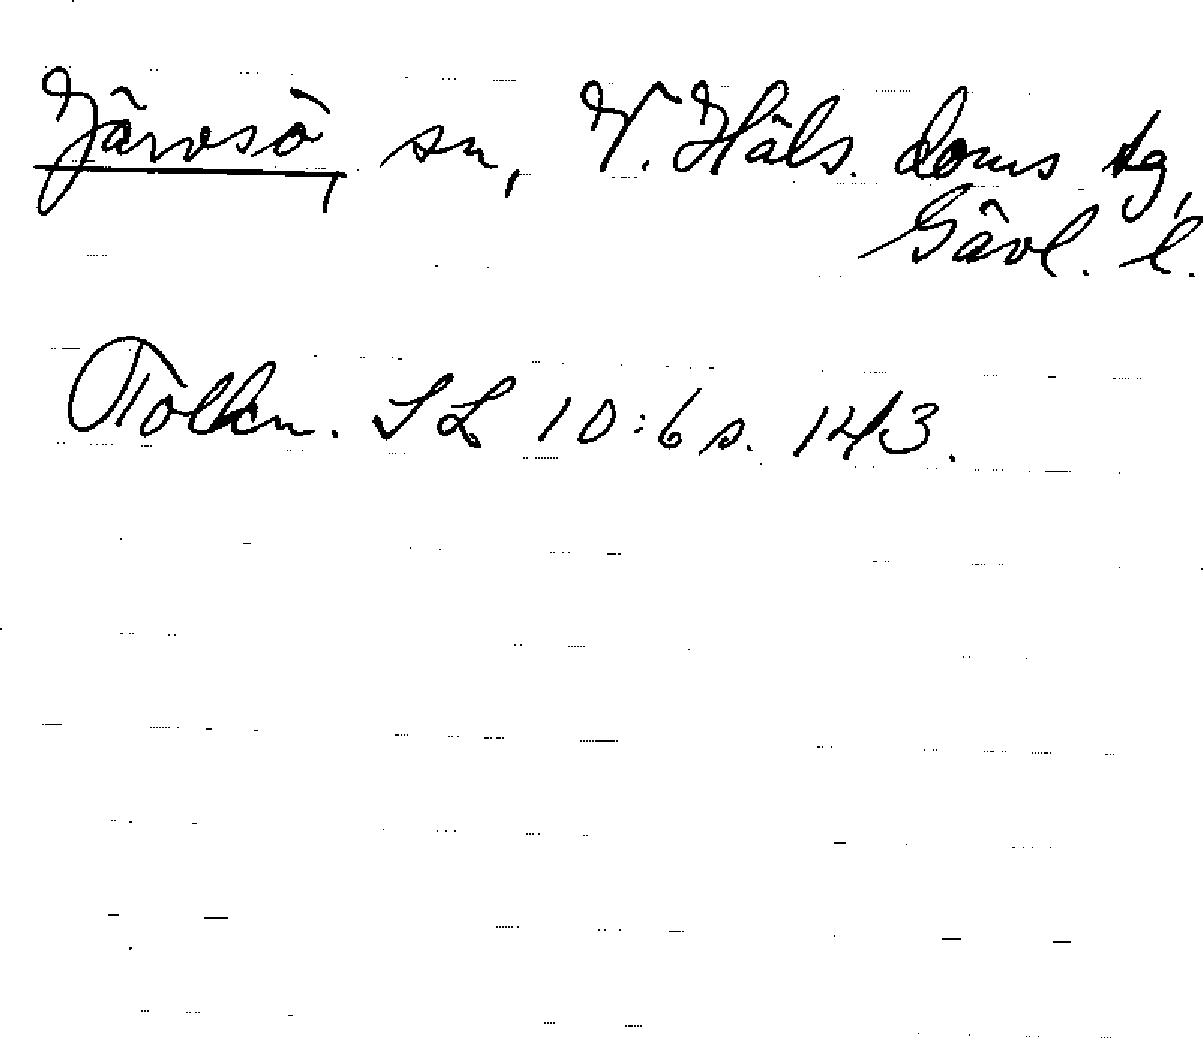 Järvsö, sn, V. Häls. doms tg,
Gävl. l.
Tolkn. SL 10:6 s. 143.